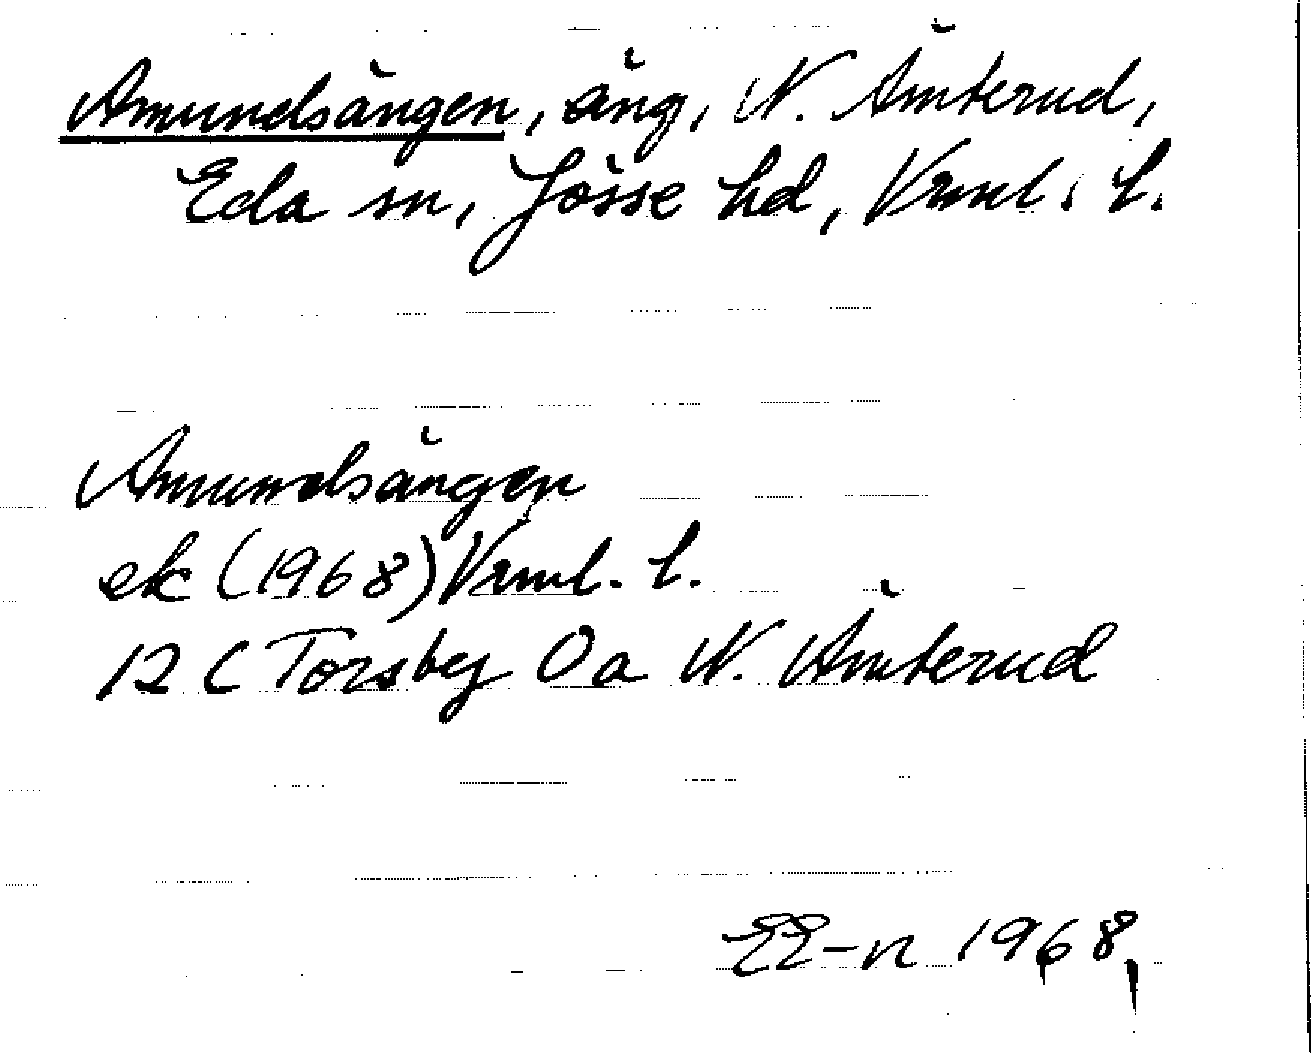 Amundsängen, äng, N. Åmterud,
Eda sn, Jösse hd, Vrml. l.
Amundsängen
ek (1968) Vrml. l.
12 C Torsby 0a N. Åmterud
EE-n 1968